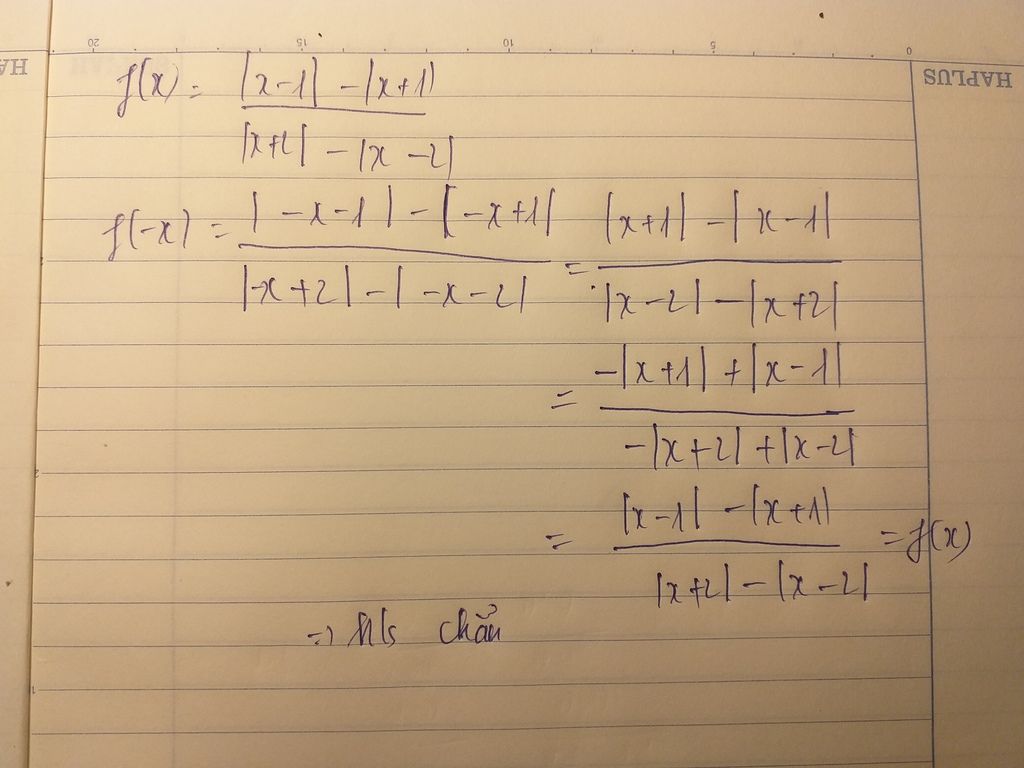 20 15 10 5 0
HAPLUS
f(x) = (|x-1| - |x+1|)/(|x+2| - |x-2|)
f(-x) = (|-x-1| - |-x+1|)/(|-x+2| - |-x-2|) = (|x+1| - |x-1|)/(|x-2| - |x+2|)
= (-|x+1| + |x-1|)/(-|x+2| + |x-2|)
= (|x-1| - |x+1|)/(|x+2| - |x-2|) = f(x)
=> h/s chẵn